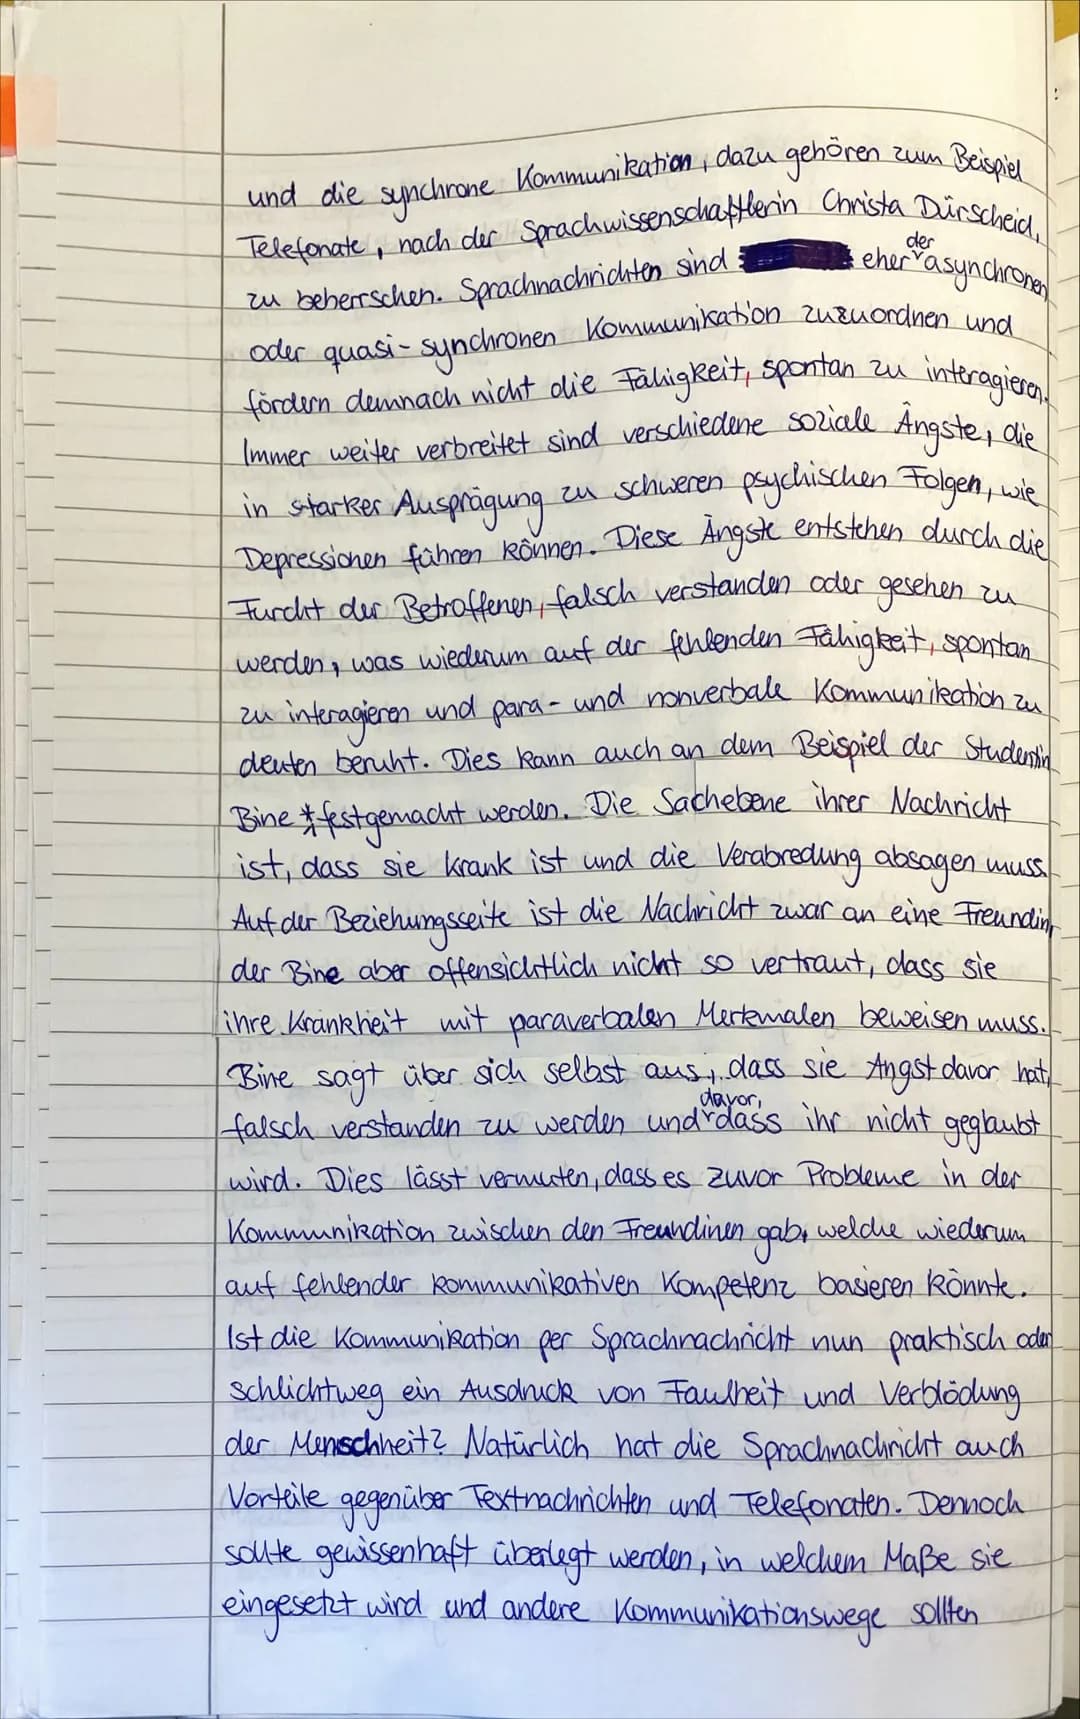 und die synchrone Kommunikation, dazu gehören zum Beispiel
Telefonate, nach der Sprachwissenschaftlerin Christa Dürscheid,
zu beherrschen. Sprachnachrichten sind eher der asynchronen
oder quasi-synchronen Kommunikation zuzuordnen und
fördern demnach nicht die Fähigkeit, spontan zu interagieren.
Immer weiter verbreitet sind verschiedene soziale Ängste, die
in starker Ausprägung zu schweren psychischen Folgen, wie
Depressionen führen können. Diese Ängste entstehen durch die
Furcht der Betroffenen, falsch verstanden oder gesehen zu
werden, was wiederum auf der fehlenden Fähigkeit, spontan
zu interagieren und para- und nonverbale Kommunikation zu
deuten beruht. Dies kann auch an dem Beispiel der Studentin
Bine * festgemacht werden. Die Sachebene ihrer Nachricht
ist, dass sie krank ist und die Verabredung absagen muss.
Auf der Beziehungsseite ist die Nachricht zwar an eine Freundin,
der Bine aber offensichtlich nicht so vertraut, dass sie
ihre Krankheit mit paraverbalen Merkmalen beweisen muss.
Bine sagt über sich selbst aus, dass sie Angst davor hat,
falsch verstanden zu werden und davor, dass ihr nicht geglaubt
wird. Dies lässt vermuten, dass es zuvor Probleme in der
Kommunikation zwischen den Freundinen gab, welche wiederum
auf fehlender kommunikativen Kompetenz basieren könnte.
Ist die Kommunikation per Sprachnachricht nun praktisch oder
schlichtweg ein Ausdruck von Faulheit und Verblödung
der Menschheit? Natürlich hat die Sprachnachricht auch
Vorteile gegenüber Textnachrichten und Telefonaten. Dennoch
sollte gewissenhaft überlegt werden, in welchem Maße sie
eingesetzt wird und andere Kommunikationswege sollten